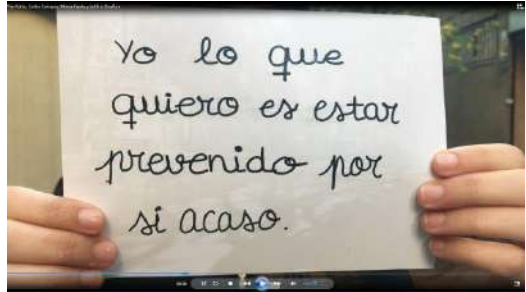 Yo lo que
quiero es estar
prevenido por
si acaso.